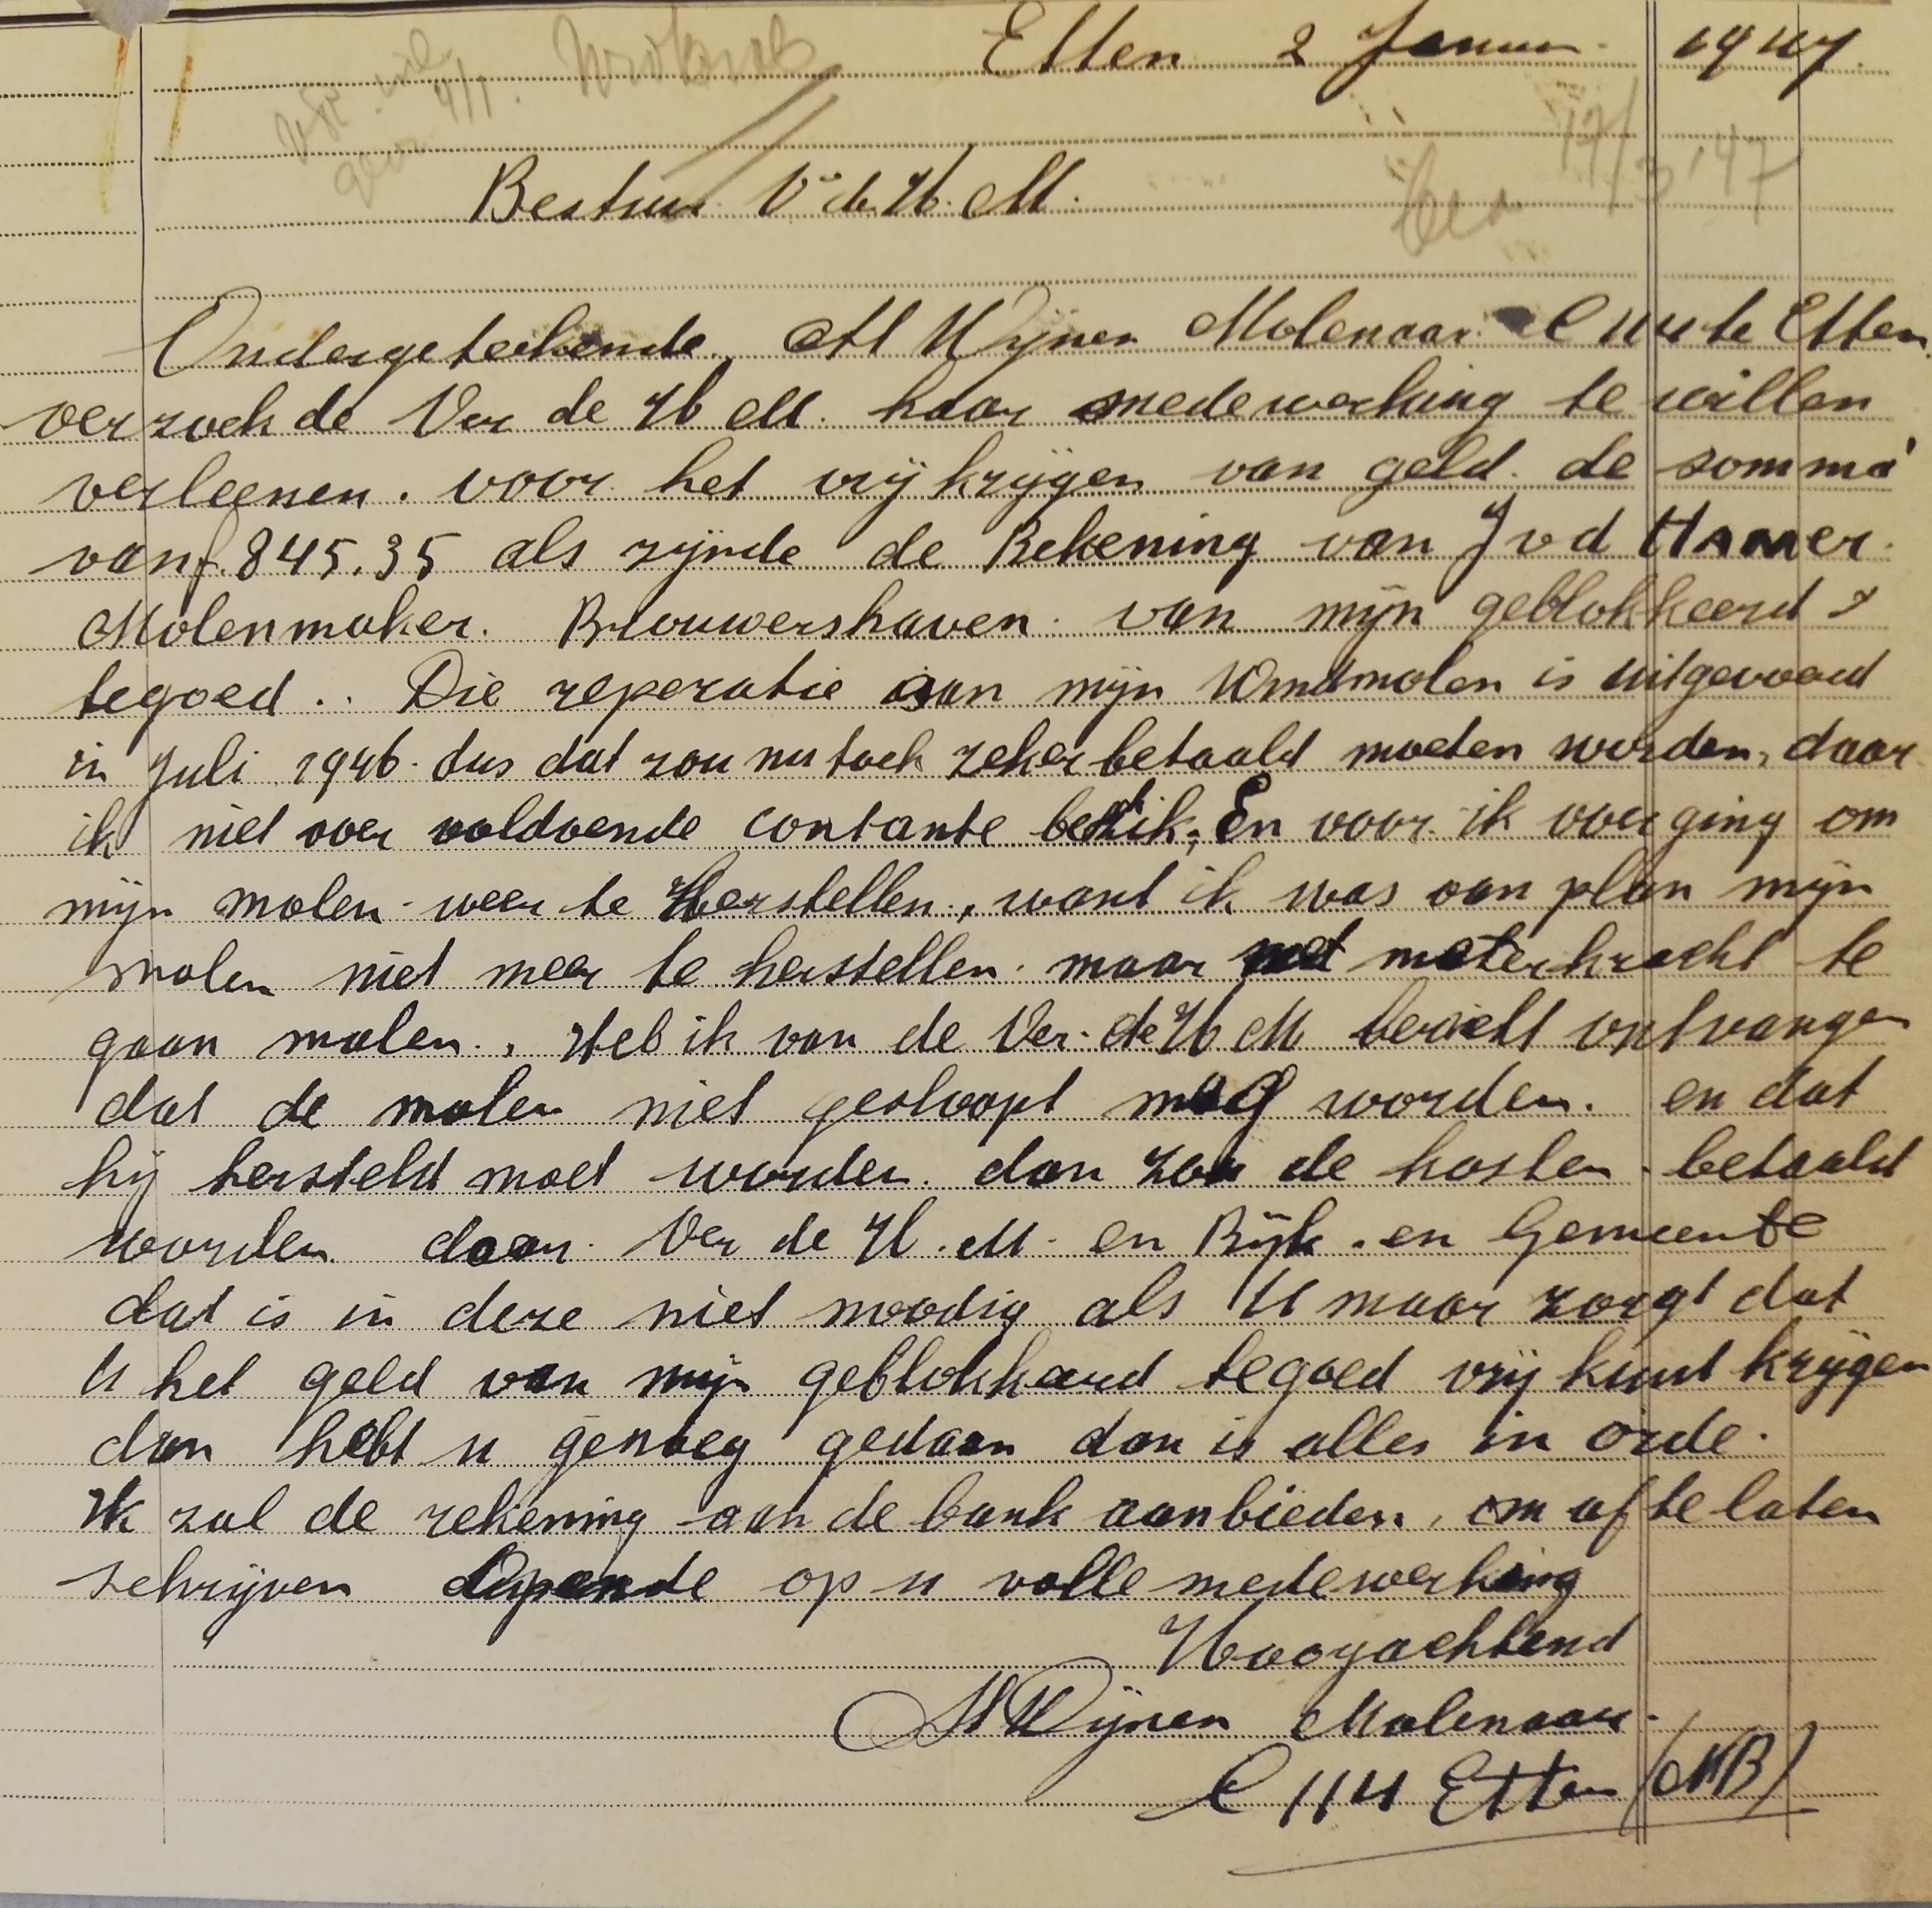 Etten 2 Januar. 1947.
4/1.
17/3 '47
Bestuur V de H. M.
Ondergeteekende, M Wijnen Molenaar C 114 te Etten
verzoek de Ver de H M. haar medewerking te willen
verleenen. voor het vrij krijgen van geld. de somma
van f. 845.35 als zijnde de Rekening van J v d Hamer.
Molenmaker. Brouwershaven. van mijn geblokkeerd
tegoed.. Die reperatie aan mijn Windmolen is uitgevoerd
in Juli 1946. dus dat zou nu toch zeker betaald moeten worden, daar
ik niet over voldoende contante beschik, En voor ik overging om
mijn molen weer te Herstellen, want ik was van plan mijn
molen niet meer te herstellen. maar met moterkracht te
gaan malen., Heb ik van de Ver. de H M bericht ontvangen
dat de molen niet gesloopt mag worden. en dat
hij hersteld moet worden. dan zou de kosten betaald
worden door. Ver de H. M. en Rijk. en Gemeente
dat is in deze niet noodig als U maar zorgt dat
U het geld van mijn geblokkeerd tegoed vrij kunt krijgen
dan hebt u genoeg gedaan dan is alles in orde.
Ik zal de rekening aan de bank aanbieden, om af te laten
schrijven Opende op u volle medewerking
Hoogachtend
M Wijnen Molenaar.
C 114 Etten (NB)